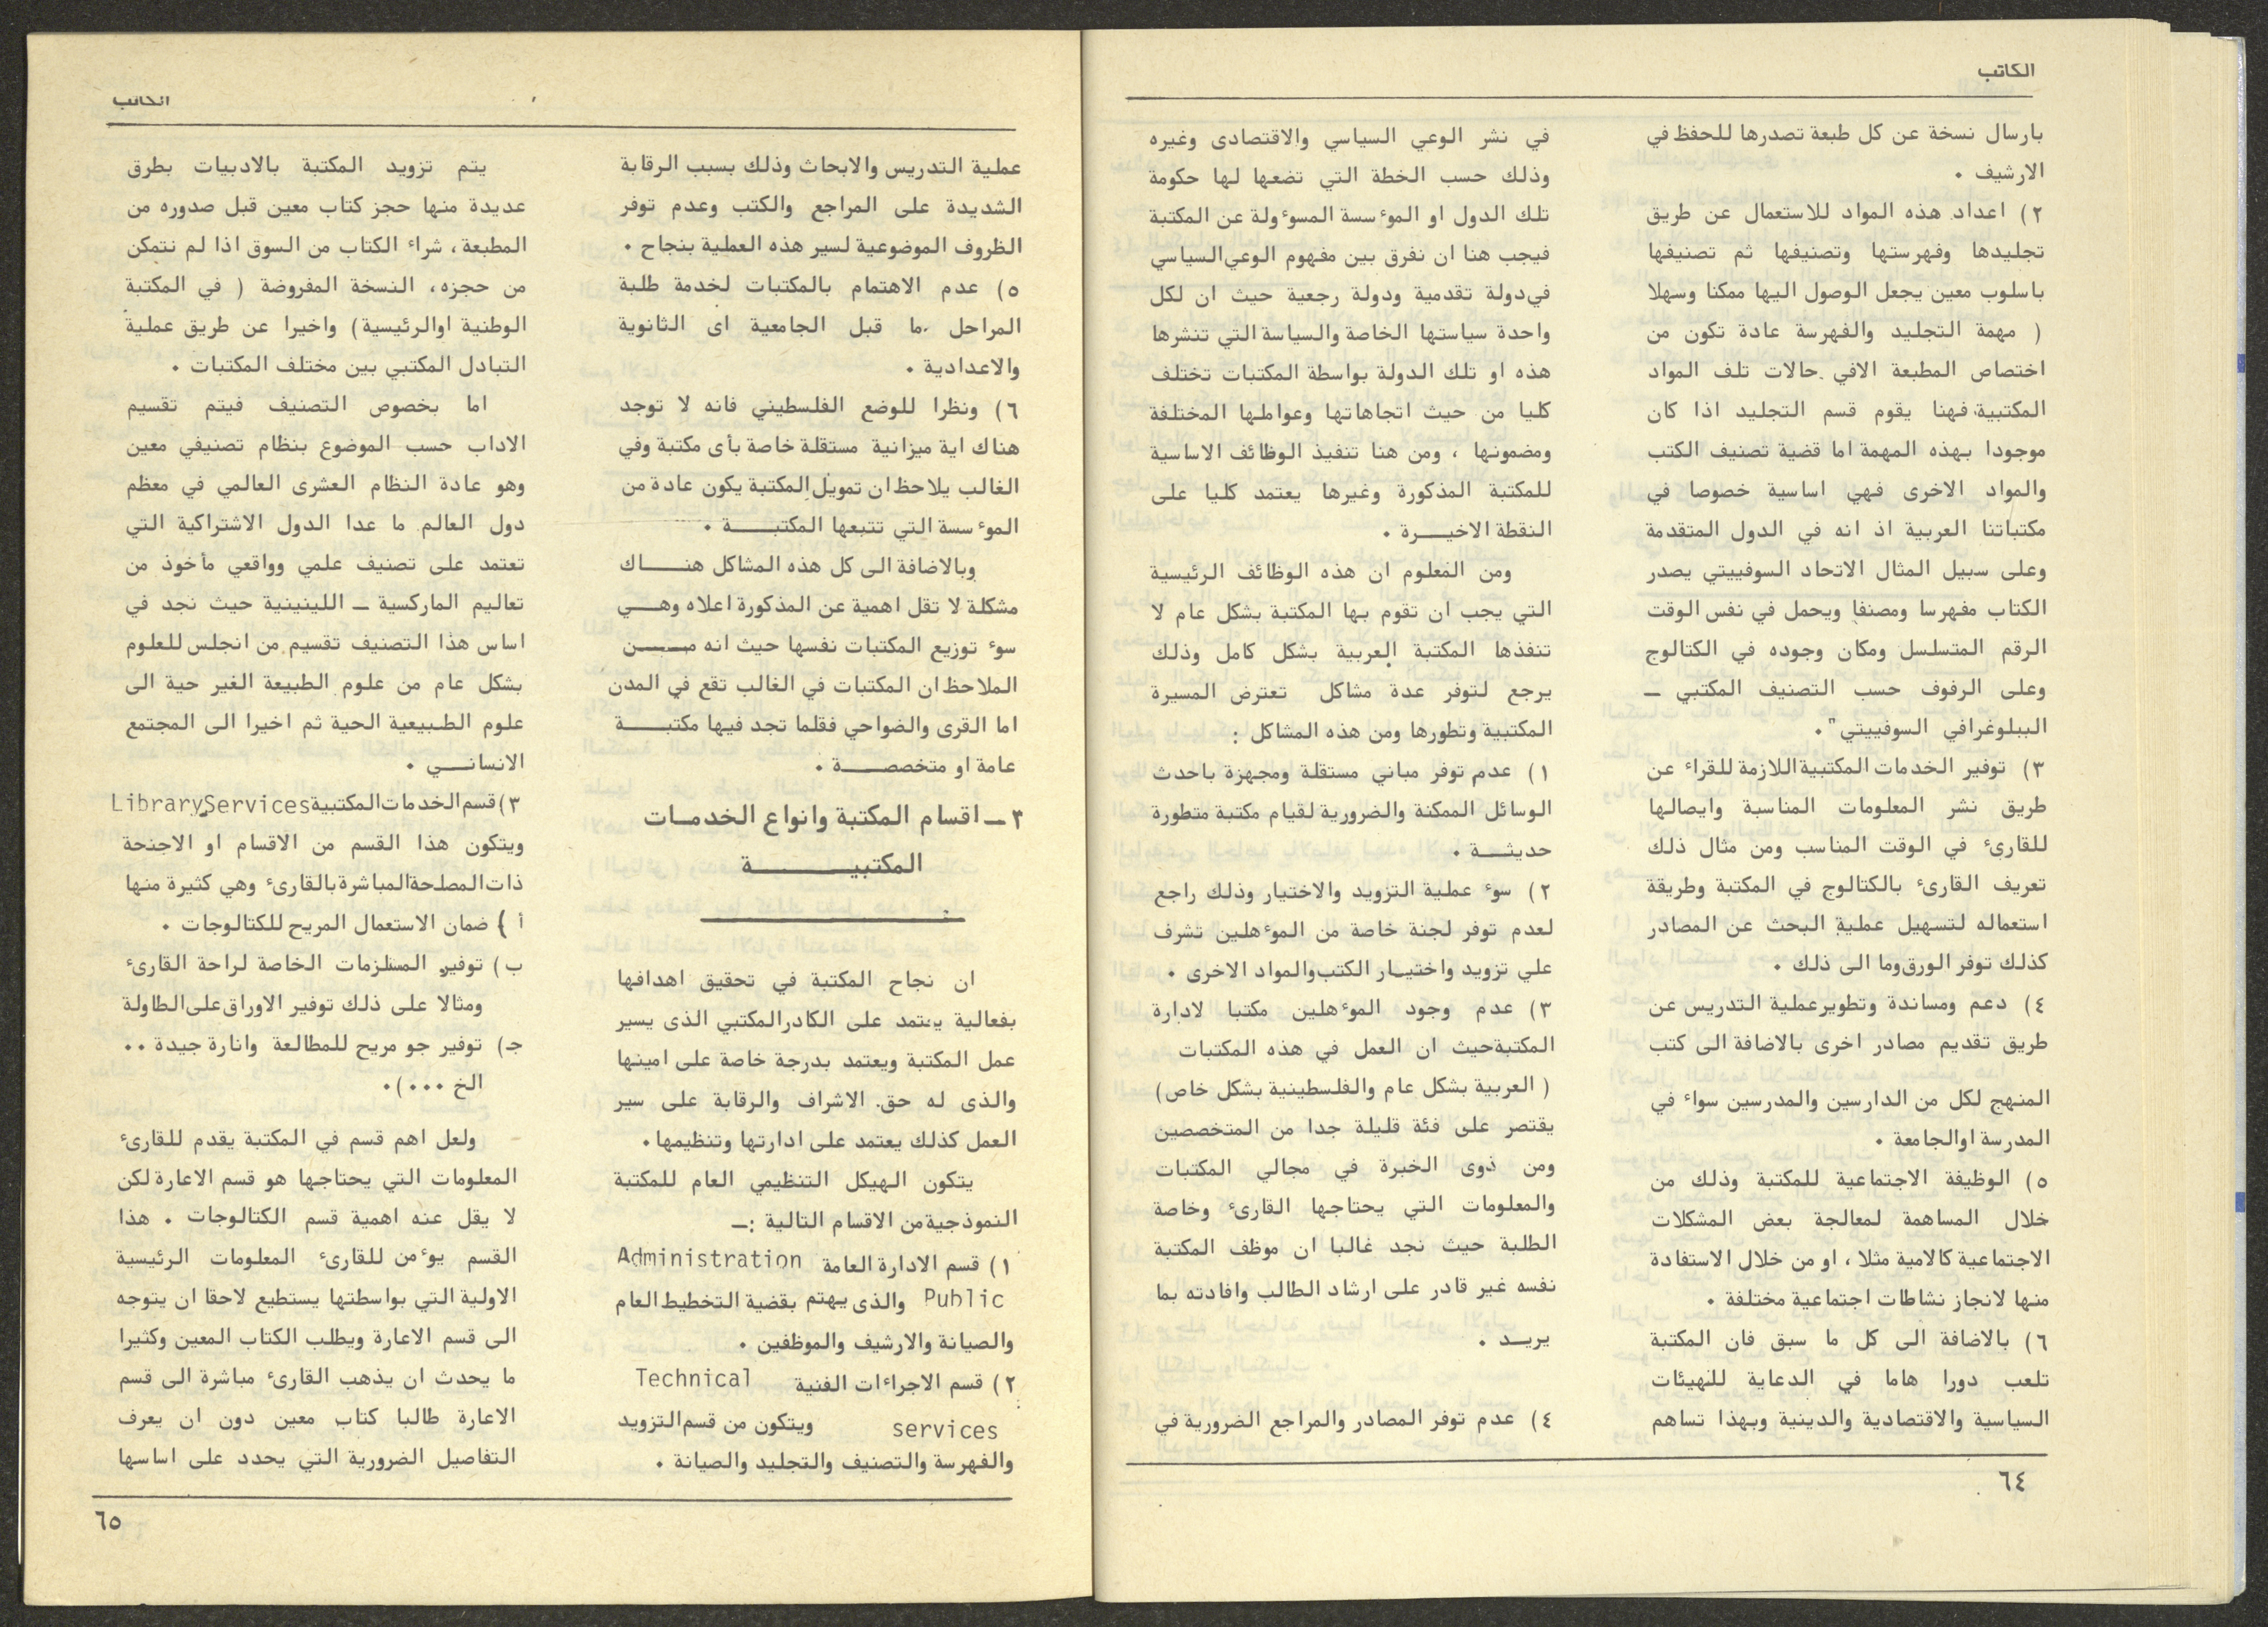 الكاتب
بارسال نسخة عن كل طبعة تصدرها للحفظ في
الارشيف .
٢) اعداد هذه المواد للاستعمال عن طريق
تجليدها وفهرستها وتصنيفها ثم تصنيفها
باسلوب معين يجعل الوصول اليها ممكنا وسهلا
( مهمة التجليد والفهرسة عادة تكون من
اختصاص المطبعة الافي حالات تلف المواد
المكتبية فهنا يقوم قسم التجليد اذا كان
موجودا بهذه المهمة اما قضية تصنيف الكتب
والمواد الاخرى فهي اساسية خصوصا في
مكتباتنا العربية اذ انه في الدول المتقدمة
وعلى سبيل المثال الاتحاد السوفييتي يصدر
الكتاب مفهرسا ومصنفا ويحمل في نفس الوقت
الرقم المتسلسل ومكان وجوده في الكتالوج
وعلى الرفوف حسب التصنيف المكتبي ــ
الببلوغرافي السوفييتي".
٣) توفير الخدمات المكتبية اللازمة للقراء عن
طريق نشر المعلومات المناسبة وايصالها
للقارئ في الوقت المناسب ومن مثال ذلك
تعريف القارئ بالكتالوج في المكتبة وطريقة
استعماله لتسهيل عملية البحث عن المصادر
كذلك توفر الورق وما الى ذلك .
٤) دعم ومساندة وتطوير عملية التدريس عن
طريق تقديم مصادر اخرى بالاضافة الى كتب
المنهج لكل من الدارسين والمدرسين سواء في
المدرسة اوالجامعة .
٥) الوظيفة الاجتماعية للمكتبة وذلك من
خلال المساهمة لمعالجة بعض المشكلات
الاجتماعية كالامية مثلا ، او من خلال الاستفادة
منها لانجاز نشاطات اجتماعية مختلفة .
٦) بالاضافة الى كل ما سبق فان المكتبة
تلعب دورا هاما في الدعاية للهيئات
السياسية والاقتصادية والدينية وبهذا تساهم
في نشر الوعي السياسي والاقتصادى وغيره
وذلك حسب الخطة التي تضعها لها حكومة
تلك الدول او المؤسسة المسؤولة عن المكتبة
فيجب هنا ان نفرق بين مفهوم الوعي السياسي
في دولة تقدمية ودولة رجعية حيث ان لكل
واحدة سياستها الخاصة والسياسة التي تنشرها
هذه او تلك الدولة بواسطة المكتبات تختلف
كليا من حيث اتجاهاتها وعواملها المختلفة
ومضمونها ، ومن هنا تنفيذ الوظائف الاساسية
للمكتبة المذكورة وغيرها يعتمد كليا على
النقطة الاخيـــرة .
ومن المعلوم ان هذه الوظائف الرئيسية
التي يجب ان تقوم بها المكتبة بشكل عام لا
تنفذها المكتبة العربية بشكل كامل وذلك
يرجع لتوفر عدة مشاكل تعترض المسيرة
المكتبية وتطورها ومن هذه المشاكل :
١) عدم توفر مباني مستقلة ومجهزة باحدث
الوسائل الممكنة والضرورية لقيام مكتبة متطورة
حديثـــة .
٢) سوء عملية التزويد والاختيار وذلك راجع
لعدم توفر لجنة خاصة من المؤهلين تشرف
علي تزويد واختيـار الكتب والمواد الاخرى .
٣) عدم وجود المؤهلين مكتبا لادارة
المكتبة حيث ان العمل في هذه المكتبات
( العربية بشكل عام والفلسطينية بشكل خاص)
يقتصر على فئة قليلة جدا من المتخصصين
ومن ذوى الخبرة في مجالي المكتبات
والمعلومات التي يحتاجها القارئ وخاصة
الطلبة حيث نجد غالبا ان موظف المكتبة
نفسه غير قادر على ارشاد الطالب وافادته بما
يريــد .
٤) عدم توفر المصادر والمراجع الضرورية في
٦٤
الكاتب
عملية التدريس والابحاث وذلك بسبب الرقابة
الشديدة على المراجع والكتب وعدم توفر
الظروف الموضوعية لسير هذه العملية بنجاح .
٥) عدم الاهتمام بالمكتبات لخدمة طلبة
المراحل ما قبل الجامعية اى الثانوية
والاعدادية .
٦) ونظرا للوضع الفلسطيني فانه لا توجد
هناك اية ميزانية مستقلة خاصة بأى مكتبة وفي
الغالب يلاحظ ان تمويل المكتبة يكون عادة من
المؤسسة التي تتبعها المكتبــــة .
وبالاضافة الى كل هذه المشاكل هنــــاك
مشكلة لا تقل اهمية عن المذكورة اعلاه وهــي
سوء توزيع المكتبات نفسها حيث انه مــــن
الملاحظ ان المكتبات في الغالب تقع في المدن
اما القرى والضواحي فقلما تجد فيها مكتبــــة
عامة او متخصصــــة .
٣ ــ اقسام المكتبة وانواع الخدمـات
المكتبيـــــــة
ان نجاح المكتبة في تحقيق اهدافها
بفعالية يعتمد على الكادر المكتبي الذى يسير
عمل المكتبة ويعتمد بدرجة خاصة على امينها
والذى له حق الاشراف والرقابة على سير
العمل كذلك يعتمد على ادارتها وتنظيمها.
يتكون الهيكل التنظيمي العام للمكتبة
النموذجية من الاقسام التالية :ــ
١) قسم الادارة العامة Administration
Public والذى يهتم بقضية التخطيط العام
والصيانة والارشيف والموظفين .
٢) قسم الاجراءات الفنية Technical
services ويتكون من قسم التزويد
والفهرسة والتصنيف والتجليد والصيانة .
يتم تزويد المكتبة بالادبيات بطرق
عديدة منها حجز كتاب معين قبل صدوره من
المطبعة، شراء الكتاب من السوق اذا لم نتمكن
من حجزه، النسخة المفروضة ( في المكتبة
الوطنية اوالرئيسية) واخيرا عن طريق عملية
التبادل المكتبي بين مختلف المكتبات .
اما بخصوص التصنيف فيتم تقسيم
الاداب حسب الموضوع بنظام تصنيفي معين
وهو عادة النظام العشرى العالمي في معظم
دول العالم ما عدا الدول الاشتراكية التي
تعتمد على تصنيف علمي وواقعي مأخوذ من
تعاليم الماركسية ــ اللينينية حيث نجد في
اساس هذا التصنيف تقسيم من انجلس للعلوم
بشكل عام من علوم الطبيعة الغير حية الى
علوم الطبيعية الحية ثم اخيرا الى المجتمع
الانسانــي .
٣) قسم الخدمات المكتبية Library Services
ويتكون هذا القسم من الاقسام او الاجنحة
ذات المصلحة المباشرة بالقارئ وهي كثيرة منها
أ ) ضمان الاستعمال المريح للكتالوجات .
ب) توفير المستلزمات الخاصة لراحة القارئ
ومثالا على ذلك توفير الاوراق على الطاولة
جـ) توفير جو مريح للمطالعة وانارة جيدة ..
الخ ...).
ولعل اهم قسم في المكتبة يقدم للقارئ
المعلومات التي يحتاجها هو قسم الاعارة لكن
لا يقل عنه اهمية قسم الكتالوجات . هذا
القسم يؤمن للقارئ المعلومات الرئيسية
الاولية التي بواسطتها يستطيع لاحقا ان يتوجه
الى قسم الاعارة ويطلب الكتاب المعين وكثيرا
ما يحدث ان يذهب القارئ مباشرة الى قسم
الاعارة طالبا كتاب معين دون ان يعرف
التفاصيل الضرورية التي يحدد على اساسها
٦٥